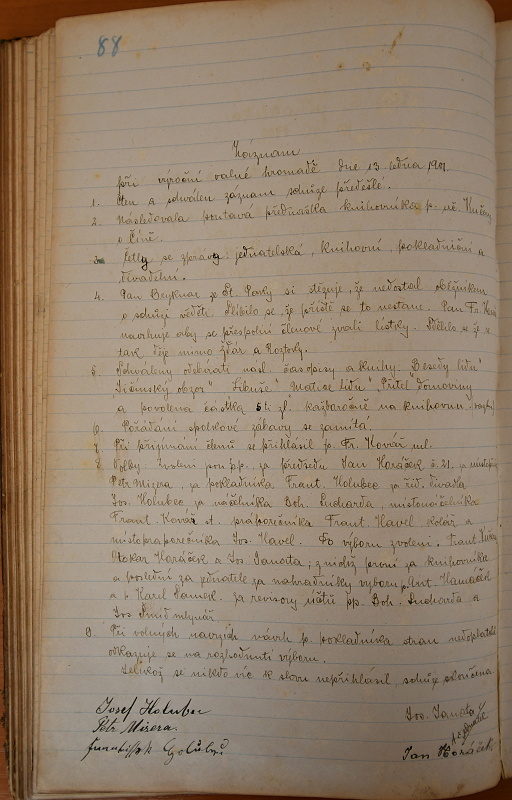 88
Záznam
při výroční valné hromadě dne 13. ledna 1901
1. Čten a schválen záznam schůze předešlé.
2. Následovala poutavá přednáška knihovníka p. uč.
o Číně.
3. Četly se zprávy: jednatelská, knihovní, pokladniční a
divadelní.
4. Pan Beyknar ze St. Paky si stěžuje, že nedostal oběžníkem
o schůzi věděti. Slíbilo se, že příště se to nestane. Pan Fr.
navrhuje aby se přespolní členové zvali lístky. Sdělilo se je
tak děje mimo Žďár a Roztoky.
5. Schváleny odebírati násl. časopisy a knihy. "Besedy lidu"
Jičínský obzor" "Libuše" "Matice lidu" "Přítel domoviny
a povolena částka 5ti zl. každoročně na knihovnu.
6. Pořádání spolkové zábavy se zamítá.
7. Při přijímání členů se přihlásil p. Fr. Kovář ml.
8. Volby zvoleni jsou pp. za předsedu Jan Horáček č. 21. za
Petr Mizera, za pokladníka Frant. Holubec za řid. divadla
Jos. Holubec za náčelníka Boh. Sucharda, místonáčelníka
Frant. Kovář st. praporečníka Frant. Havel kolář a
místopraporečníka Jos. Havel. Do výboru zvoleni: Frant.
Otokar Horáček a Jos. Janota; z nichž první za knihovníka
a poslední za jednatele za náhradníky výboru p. Ant. Hamáček
a p. Karel Samek. Za revisory účtů pp. Boh. Sucharda a
Jos. Šmíd mlynář.
9. Při volných návrzích návrh p. pokladníka stran nedoplatků
odkazuje se na rozhodnutí výboru.
Jelikož se nikdo víc k slovu nepřihlásil, schůze skončena.
Josef Holubec Jos. Janota
Petr Mizera. jednatel
František Jan Horáček